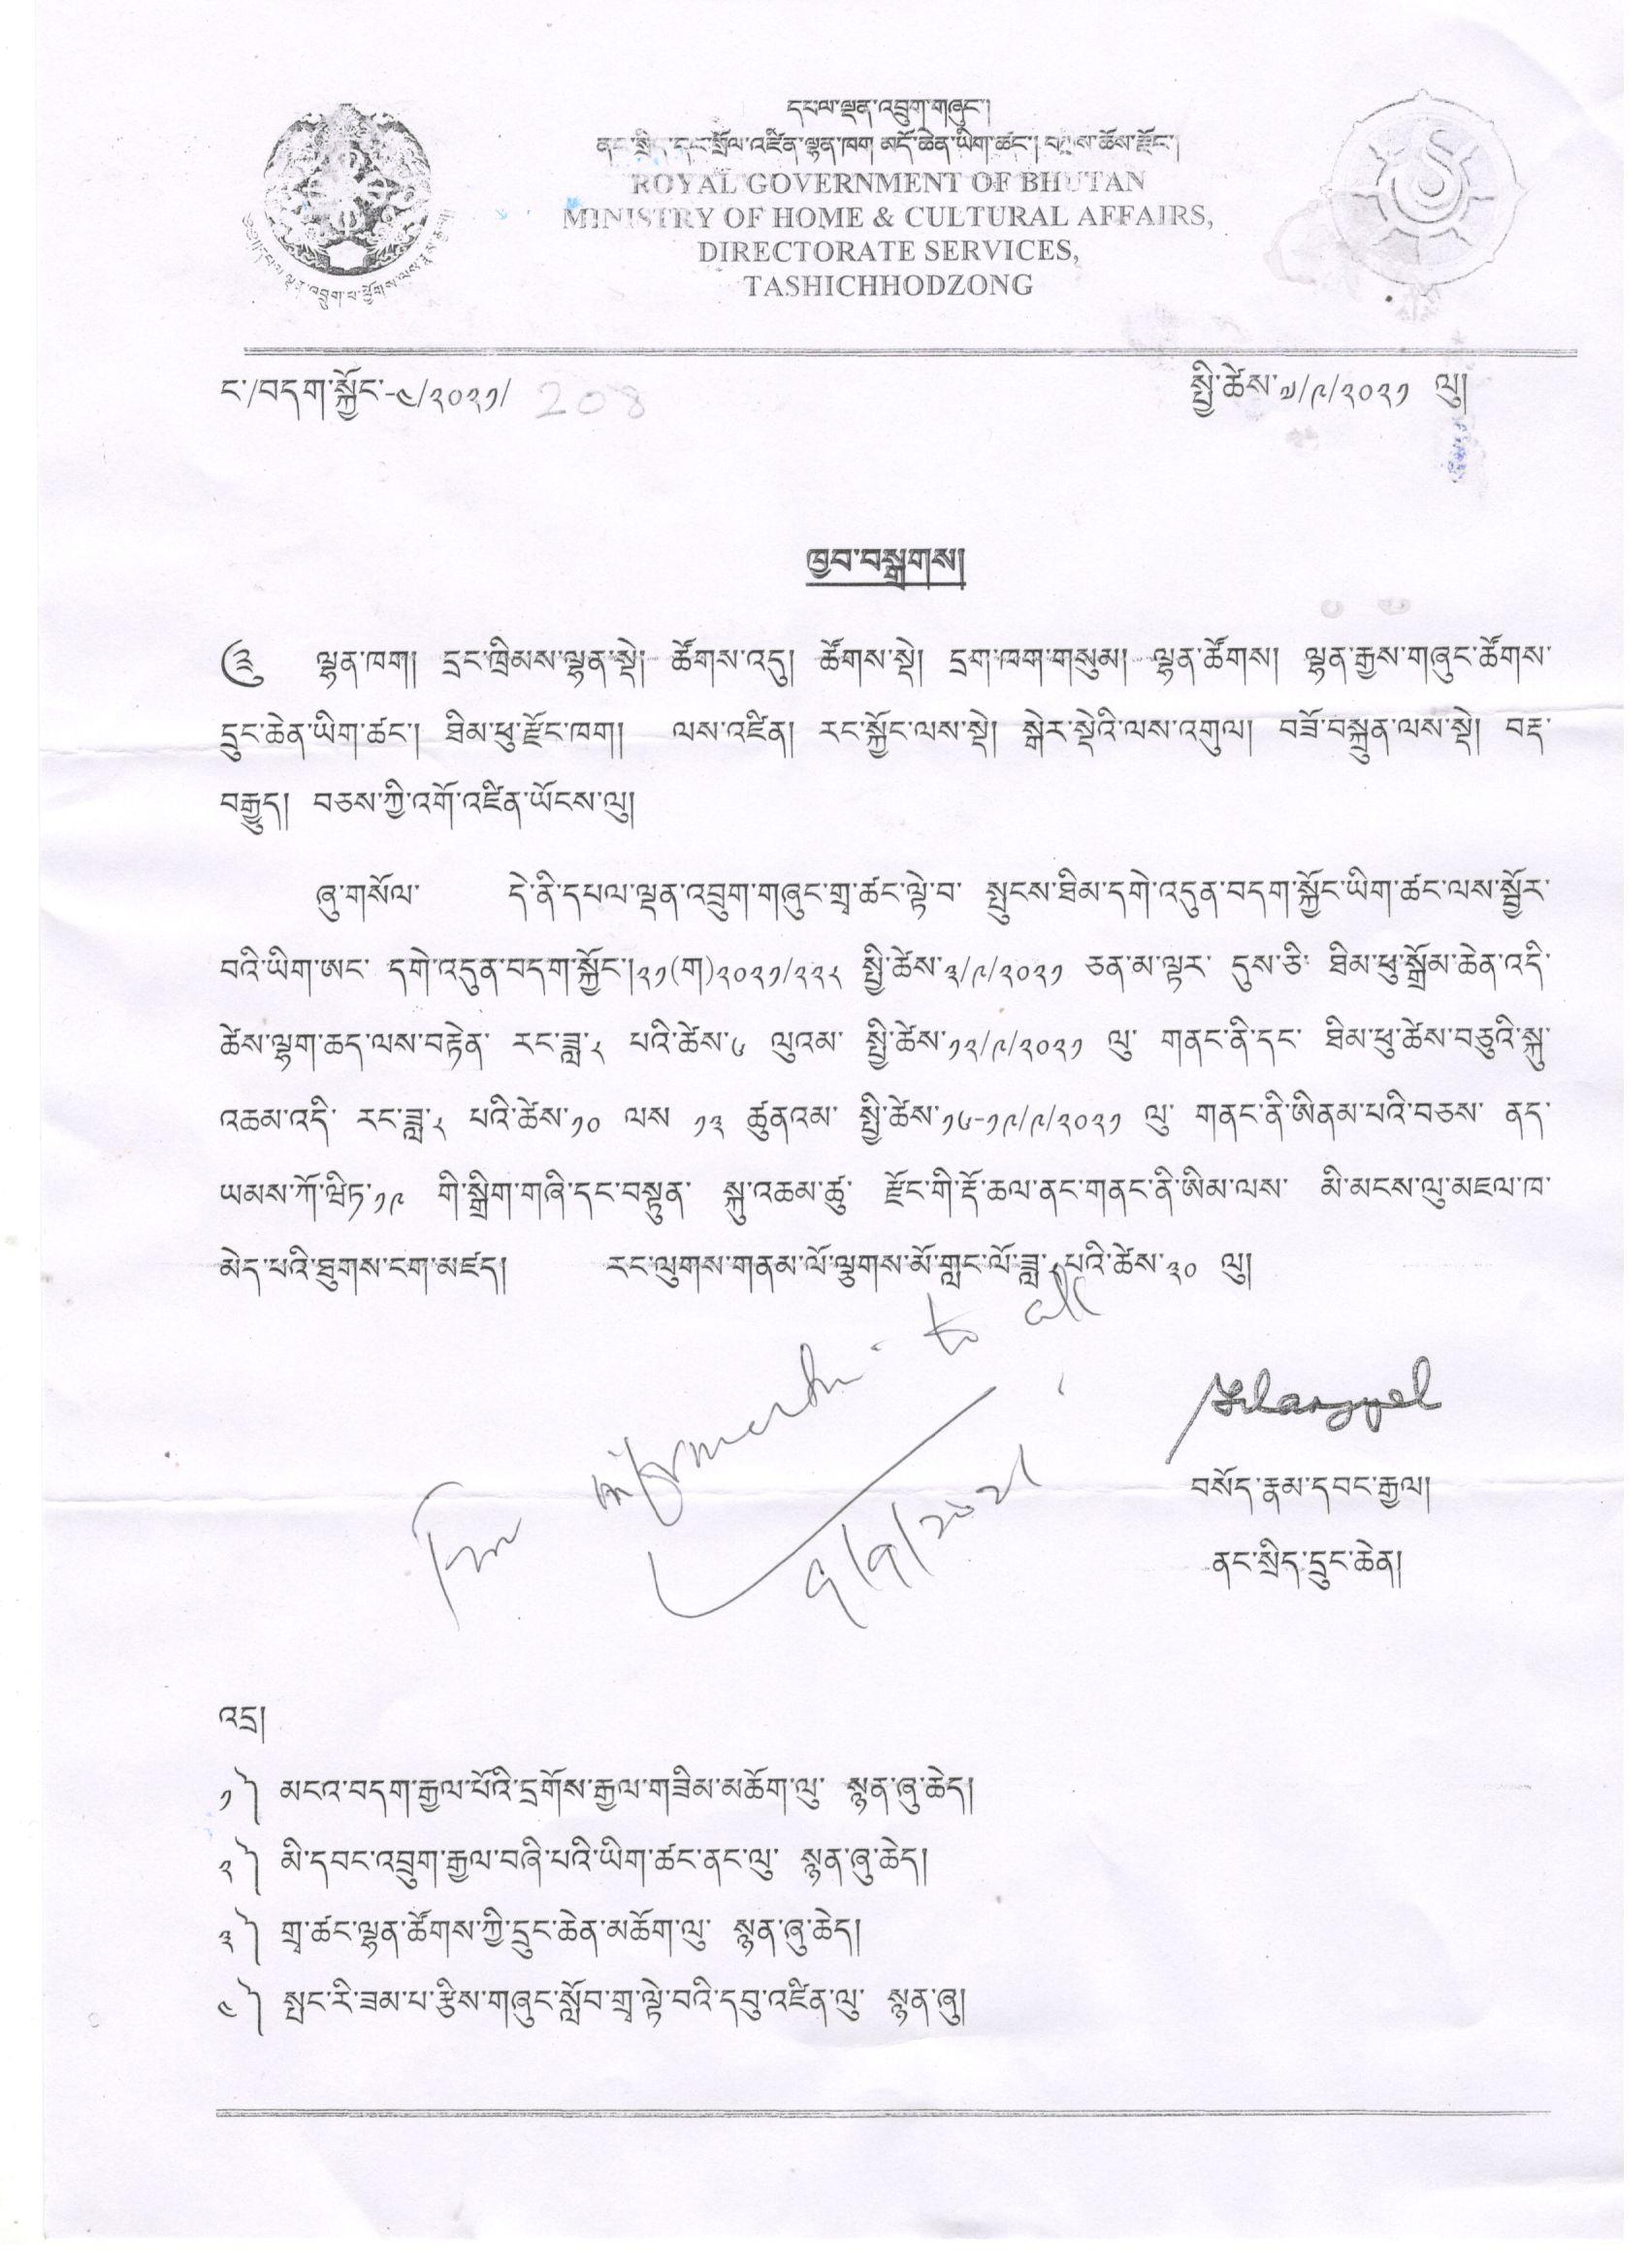 དཔལ་ལྡན་འབྲུག་གཞུང་།
ནང་སྲིད་དང་སྲོལ་འཛིན་ལྷན་ཁག མདོ་ཆེན་ཡིག་ཚང་། བཀྲིས་ཆོས་རྫོང་།
ROYAL GOVERNMENT OF BHUTAN
MINISTRY OF HOME & CULTURAL AFFAIRS,
DIRECTORATE SERVICES,
TASHICHHODZONG
ང་/བདག་སྐྱོང་-༤/༢༠༢༡/ 208
སྤྱི་ཚེས་༧/༩/༢༠༢༡ ལུ།
ཁྱབ་བསྒྲགས།
ལྷན་ཁག། དྲང་ཁྲིམས་ལྷན་སྡེ། ཚོགས་འདུ། ཚོགས་སྡེ། དྲག་ཁག་གསུམ། ལྷན་ཚོགས། ལྷན་རྒྱས་གཞུང་ཚོགས་
དྲུང་ཆེན་ཡིག་ཚང་། ཐིམ་ཕུ་རྫོང་ཁག། ལས་འཛིན། རང་སྐྱོང་ལས་སྡེ། སྒེར་སྡེའི་ལས་འགུལ། བཟོ་བསྐྲུན་ལས་སྡེ། བརྡ་
བརྒྱུད། བཅས་ཀྱི་འགོ་འཛིན་ཡོངས་ལུ།
ཞུ་གསོལ་ དེ་ནི་དཔལ་ལྡན་འབྲུག་གཞུང་གྲྭ་ཚང་ལྟེ་བ་ སྤུངས་ཐིམ་དགེ་འདུན་བདག་སྐྱོང་ཡིག་ཚང་ལས་སྦྱོར་
བའི་ཡིག་ཨང་ དགེ་འདུན་བདག་སྐྱོང་།༢༡(ག)༢༠༢༡/༢༢༨ སྤྱི་ཚེས་༣/༩/༢༠༢༡ ཅན་མ་ལྟར་ དུས་ཅི་ ཐིམ་ཕུ་སྒྲོམ་ཆེན་འདི་
ཚེས་ལྷག་ཆད་ལས་བརྟེན་ རང་ཟླ་༨ པའི་ཚེས་༦ ལུའམ་ སྤྱི་ཚེས་༡༢/༩/༢༠༢༡ ལུ་ གནང་ནི་དང་ ཐིམ་ཕུ་ཚེས་བཅུའི་སྐུ་
འཆམ་འདི་ རང་ཟླ་༨ པའི་ཚེས་༡༠ ལས ༡༣ ཚུནའམ་ སྤྱི་ཚེས་༡༦-༡༩/༩/༢༠༢༡ ལུ་ གནང་ནི་ཨིནམ་པའི་བཅས་ ནད་
ཡམས་ཀོ་ཝིཌ་༡༩ གི་སྒྲིག་གཞི་དང་བསྟུན་ སྐུ་འཆམ་ཚུ་ རྫོང་གི་རྡོ་ཆལ་ནང་གནང་ནི་ཨིམ་ལས་ མི་མངས་ལུ་མཇལ་ཁ་
མེད་པའི་ཐུགས་ངག་མཛད། རང་ལུགས་གནམ་ལོ་ལྕགས་མོ་གླང་ལོ་ཟླ་ པའི་ཚེས་༣༠ ལུ།
For information to all
9/9/2021
བསོད་རྣམ་དབང་རྒྱལ།
ནང་སྲིད་དྲུང་ཆེན།
འདྲ།
༡༽ མངའ་བདག་རྒྱལ་པོའི་དྲགོས་རྒྱལ་གཟིམ་མཆོག་ལུ་ སྙན་ཞུ་ཆེད།
༢༽ མི་དབང་འབྲུག་རྒྱལ་བཞི་པའི་ཡིག་ཚང་ནང་ལུ་ སྙན་ཞུ་ཆེད།
༣༽ གྲྭ་ཚང་ལྷན་ཚོགས་ཀྱི་དྲུང་ཆེན་མཆོག་ལུ་ སྙན་ཞུ་ཆེད།
༤༽ སྤང་རི་ཟམ་པ་རྩིས་གཞུང་སློབ་གྲྭ་ལྟེ་བའི་དབུ་འཛིན་ལུ་ སྙན་ཞུ།